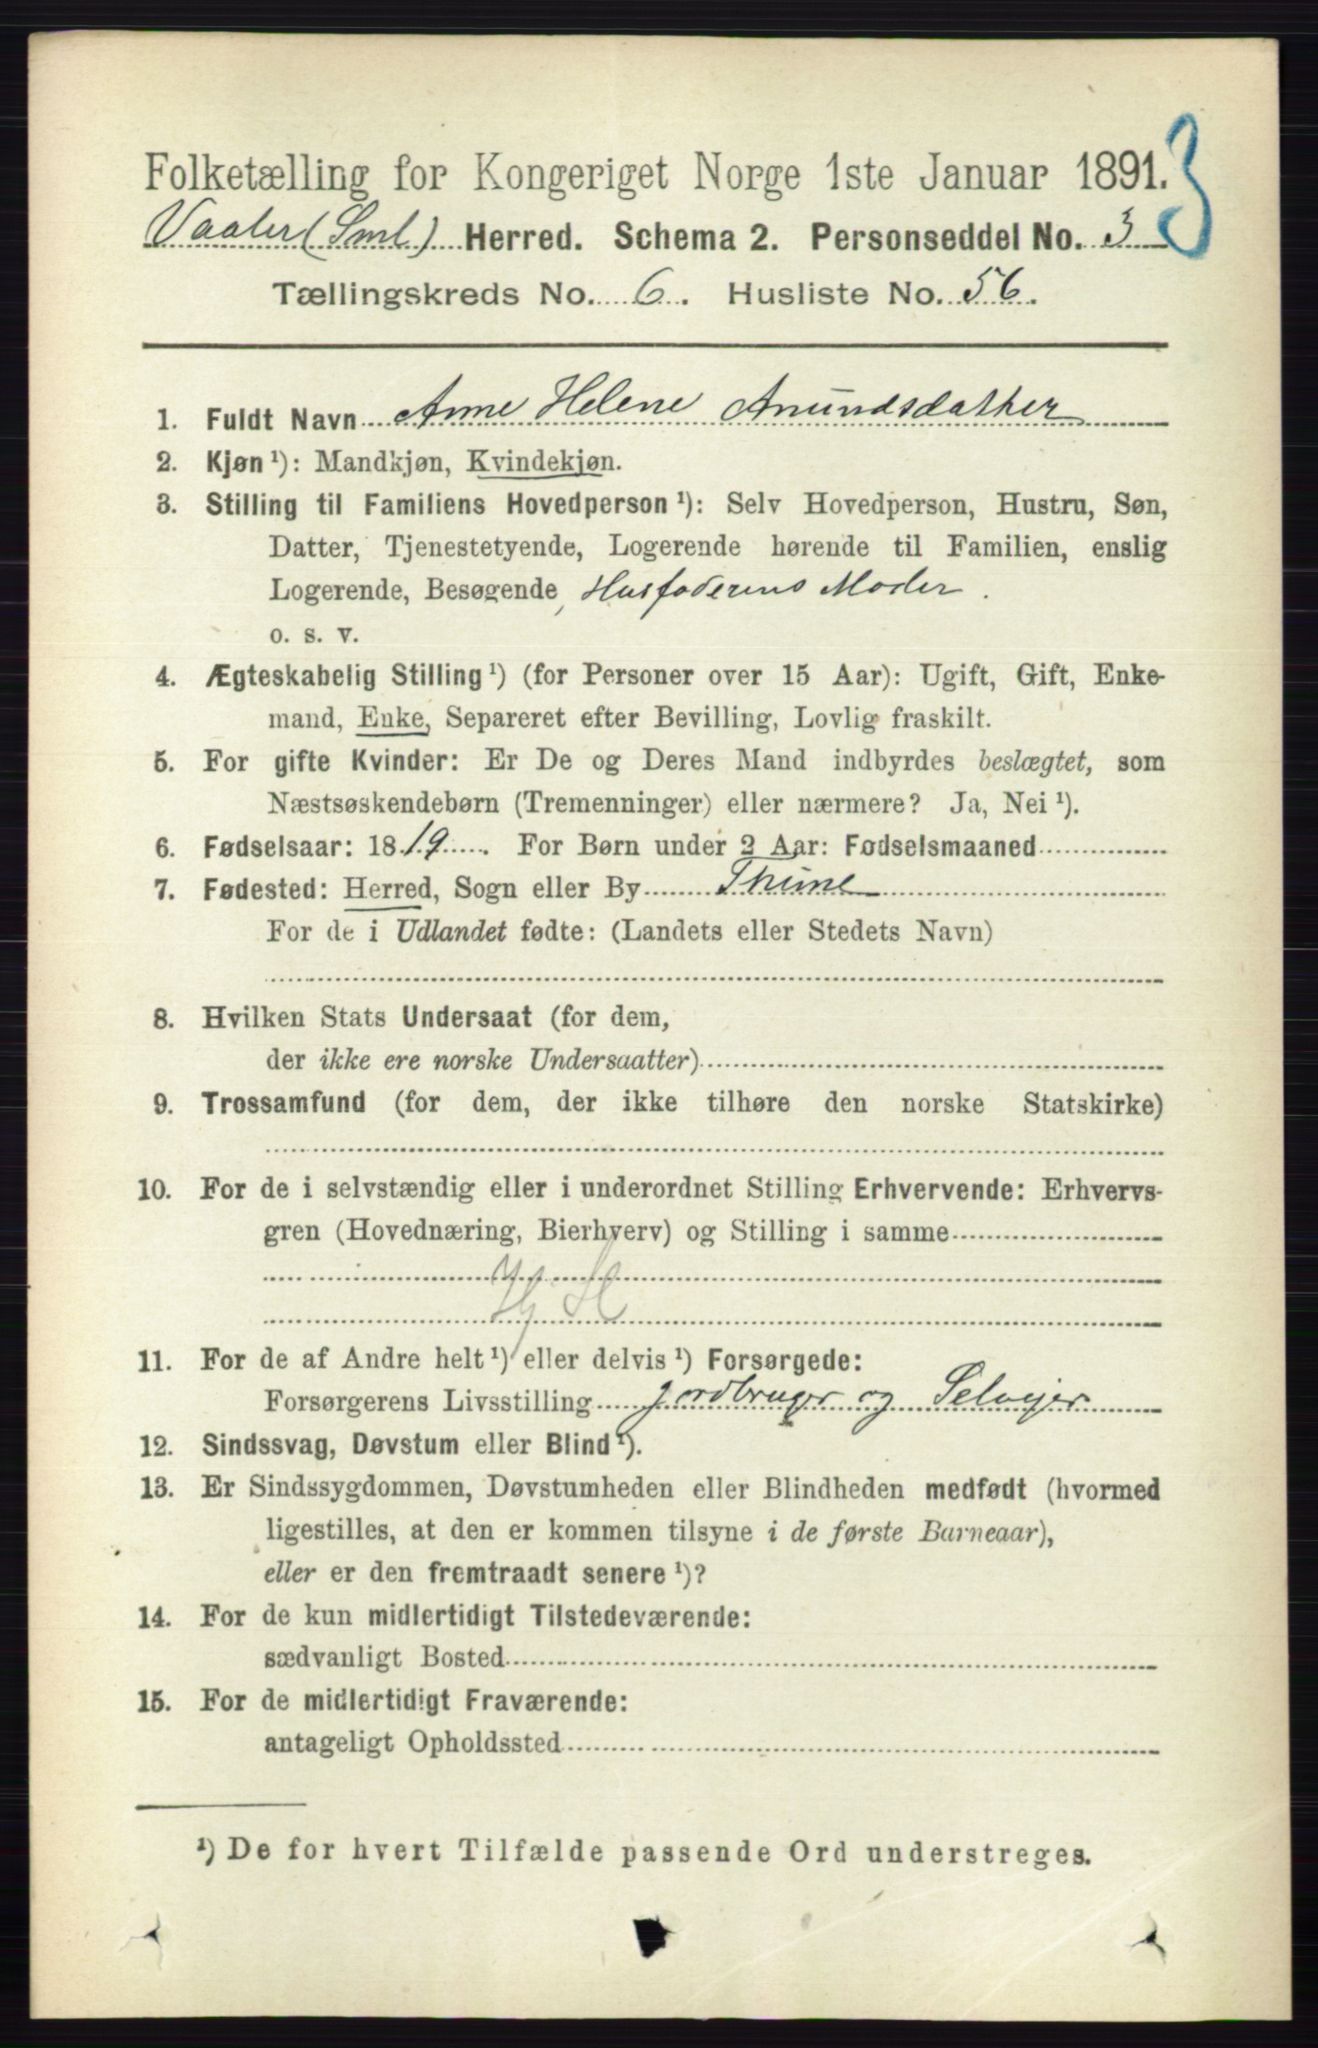 Folketælling for Kongeriget Norge 1ste Januar 1891.
3
Vaaler (Sml) Herred. Schema 2. Personseddel No. 3
Tællingskreds No. 6. Husliste No. 56.
1. Fuldt Navn Anne Helene Amundsdatter
2. Kjøn ¹): Mandkjøn, Kvindekjøn.
3. Stilling til Familiens Hovedperson ¹): Selv Hovedperson, Hustru, Søn,
Datter, Tjenestetyende, Logerende hørende til Familien, enslig
Logerende, Besøgende, Husfaderens Moder.
o. s. v.
4. Ægteskabelig Stilling ¹) (for Personer over 15 Aar): Ugift, Gift, Enke-
mand, Enke, Separeret efter Bevilling, Lovlig fraskilt.
5. For gifte Kvinder: Er De og Deres Mand indbyrdes beslægtet, som
Næstsøskendebørn (Tremenninger) eller nærmere? Ja, Nei ¹).
6. Fødselsaar: 1819. For Børn under 2 Aar: Fødselsmaaned
7. Fødested: Herred, Sogn eller By Thune
For de i Udlandet fødte: (Landets eller Stedets Navn)
8. Hvilken Stats Undersaat (for dem,
der ikke ere norske Undersaatter)
9. Trossamfund (for dem, der ikke tilhøre den norske Statskirke)
10. For de i selvstændig eller i underordnet Stilling Erhvervende: Erhvervs-
gren (Hovednæring, Bierhverv) og Stilling i samme
11. For de af Andre helt ¹) eller delvis ¹) Forsørgede:
Forsørgerens Livsstilling Jordbruger og Selveier
12. Sindssvag, Døvstum eller Blind ¹).
13. Er Sindssygdommen, Døvstumheden eller Blindheden medfødt (hvormed
ligestilles, at den er kommen tilsyne i de første Barneaar),
eller er den fremtraadt senere ¹)?
14. For de kun midlertidigt Tilstedeværende:
sædvanligt Bosted
15. For de midlertidigt Fraværende:
antageligt Opholdssted
¹) De for hvert Tilfælde passende Ord understreges.